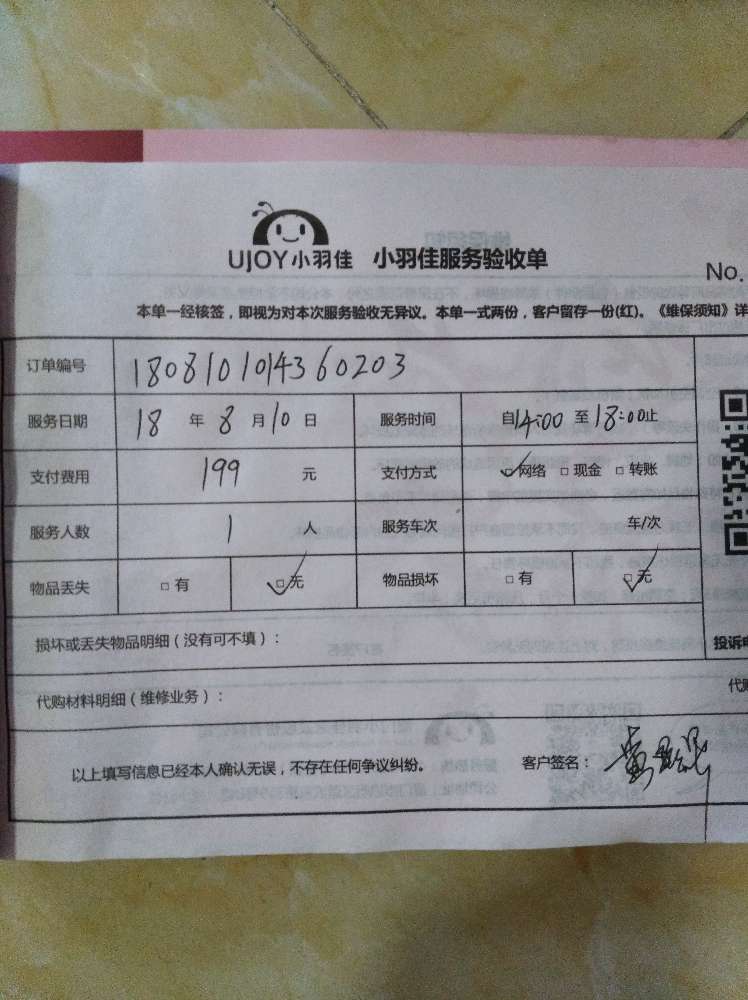 UJOY小羽佳 小羽佳服务验收单
No.
本单一经核签，即视为对本次服务验收无异议。本单一式两份，客户留存一份(红)。《维保须知》详
订单编号 180810101436​0203
服务日期 18 年 8 月 10 日 服务时间 自14:00 至 18:00止
支付费用 199 元 支付方式 ☑网络 □现金 □转账
服务人数 1 人 服务车次 车/次
物品丢失 □有 ☑无 物品损坏 □有 ☑无
损坏或丢失物品明细（没有可不填）： 投诉
代购材料明细（维修业务）： 代
以上填写信息已经本人确认无误，不存在任何争议纠纷。 客户签名： 黄